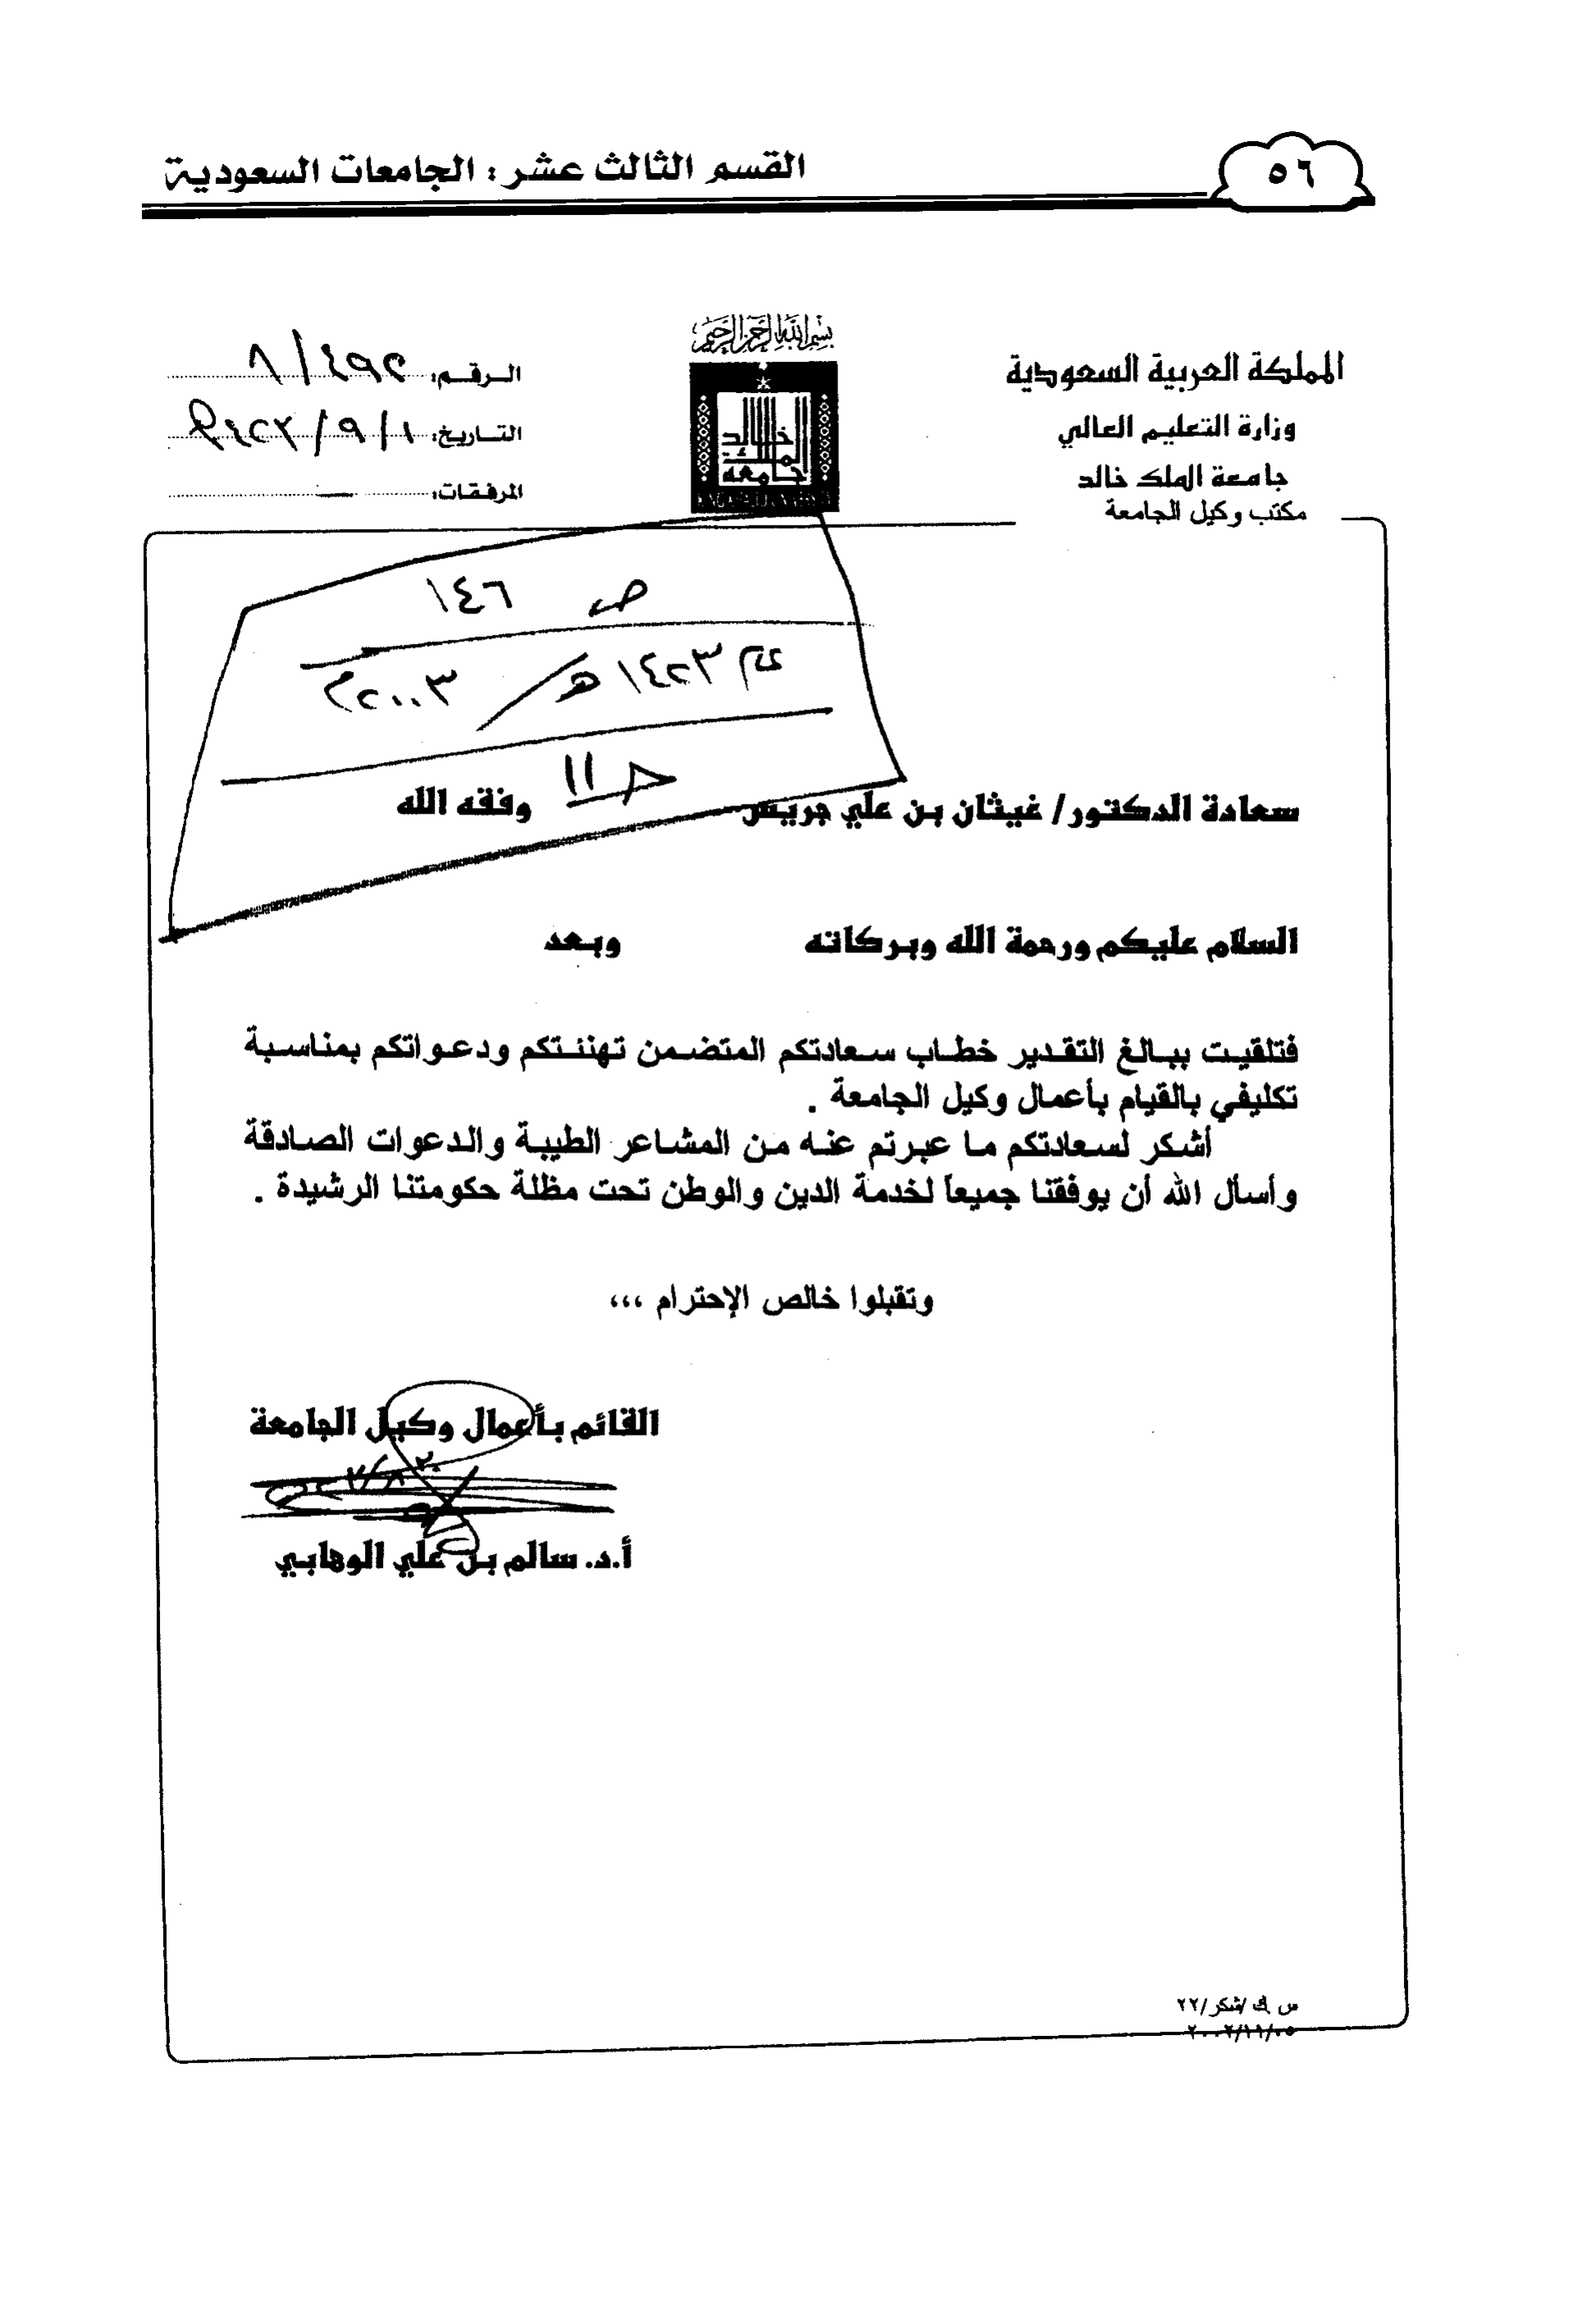 القسم الثالث عشر : الجامعات السعودية
٥٦
بسم الله الرحمن الرحيم
المملكة العربية السعودية
وزارة التعليم العالي
جامعة الملك خالد
مكتب وكيل الجامعة
جامعة
الملك
خالد
الرقم: ٨/٤٩٢
التاريخ: ١/٩/
المرفقات: ــ
ص ١٤٦
عام ١٤٢٣ هـ / ٢٠٠٣م
سعادة الدكتور/ غيثان بن علي جريس وفقه الله
السلام عليكم ورحمة الله وبركاته وبعد
فتلقيت ببالغ التقدير خطاب سعادتكم المتضمن تهنئتكم ودعواتكم بمناسبة
تكليفي بالقيام بأعمال وكيل الجامعة .
أشكر لسعادتكم ما عبرتم عنه من المشاعر الطيبة والدعوات الصادقة
وأسأل الله أن يوفقنا جميعاً لخدمة الدين والوطن تحت مظلة حكومتنا الرشيدة .
وتقبلوا خالص الإحترام ،،،
القائم بأعمال وكيل الجامعة
أ.د. سالم بن علي الوهابي
س ك/شكر/٢٢
٢٠٠٢/١١/٠٥